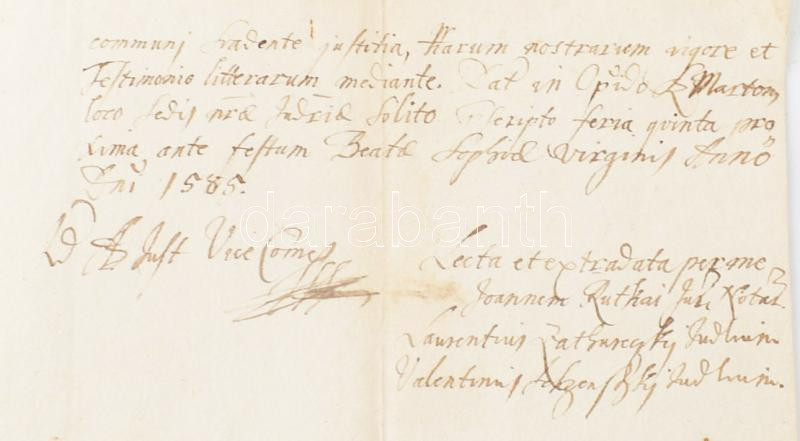 communi suadente justitia, Harum nostrarum vigore et
Testimonio litterarum mediante. Dat in Opido S Marton
loco sedis nrae Judriae solito pscripto feria quinta pro
xima ante festum Beatae Sophiae virginis Anno
Dni 1585.
Just Vice Comes
Lecta et extradata per me
Joannem Ruthai Jur. Notar.
Laurentius Zathureczkij Judlium
Valentinus Judlium.
darabanth